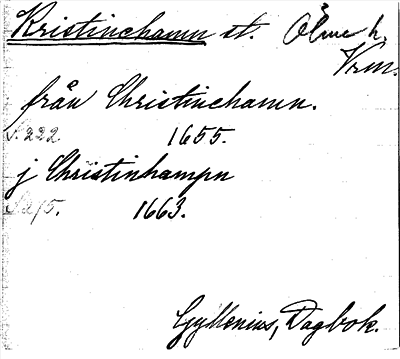 Kristinehamn st. Ölme h.
Vrm.
från Christinehamn.
S. 222 1655.
j Christinhampn
S. 215. 1663.
Gyllenius, Dagbok.